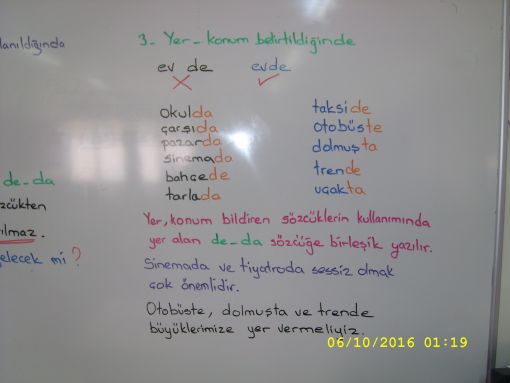 lanıldığında
de-da
zcükten
ılmaz.
gelecek mi?
3- Yer-konum belirtildiğinde
ev de evde
okulda
çarşıda
pazarda
sinemada
bahçede
tarlada
takside
otobüste
dolmuşta
trende
uçakta
Yer, konum bildiren sözcüklerin kullanımında
yer alan de-da sözcüğe birleşik yazılır.
Sinemada ve tiyatroda sessiz olmak
çok önemlidir.
Otobüste, dolmuşta ve trende
büyüklerimize yer vermeliyiz.
06/10/2016 01:19